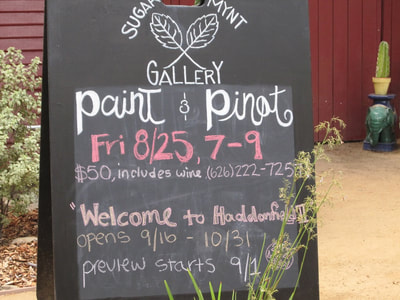 SUGAR MYNT
GALLERY
Paint & Pinot
Fri 8/25, 7-9
$50, includes wine (626) 222-725
"Welcome to Haddonfield"
opens 9/16 - 10/31
preview starts 9/1